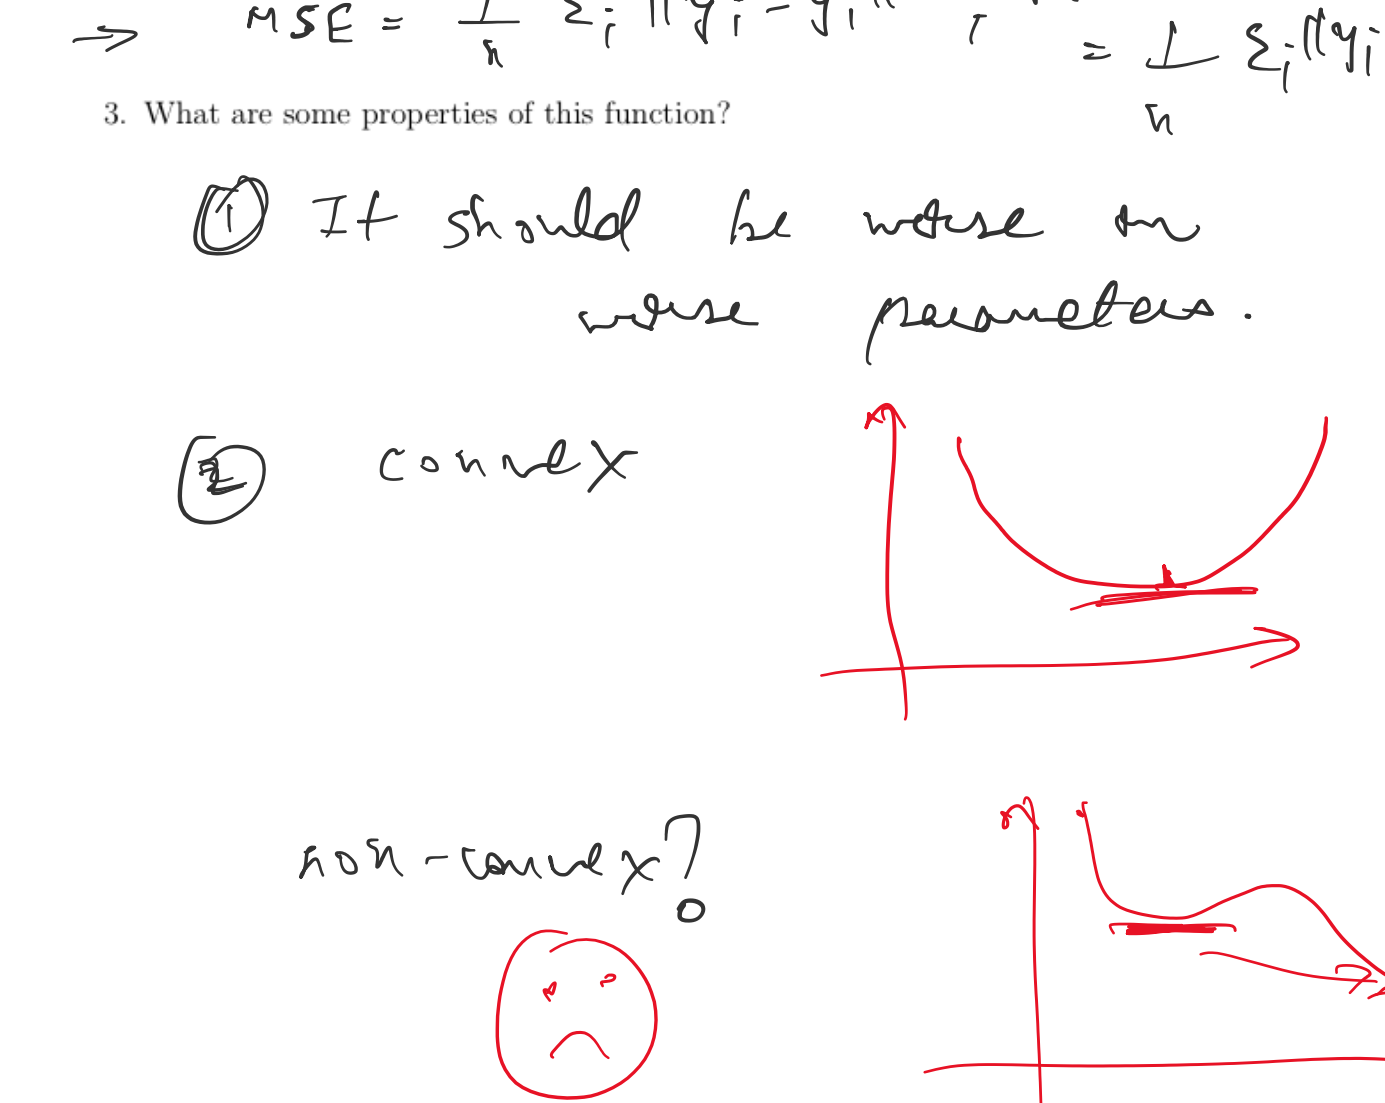 → MSE = 1/n Σi ||yi - yi||
= 1/n Σi ||yi
3. What are some properties of this function?
① It should be worse on
worse parameters.
② convex
non-convex?